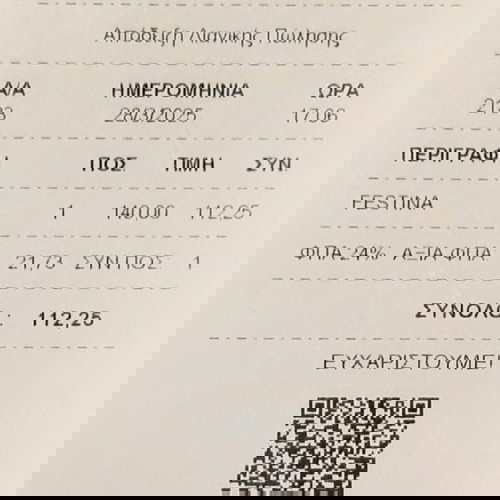 Απόδειξη Λιανικής Πώλησης
Α/Α ΗΜΕΡΟΜΗΝΙΑ ΩΡΑ
17:06
ΠΕΡΙΓΡΑΦΗ ΠΟΣ ΤΙΜΗ ΣΥΝ.
FESTINA
1 140,00 112,25
ΦΠΑ 24% ΑΞΙΑ ΦΠΑ:
21,73 ΣΥΝ.ΠΟΣ: 1
ΣΥΝΟΛΟ: 112,25
ΕΥΧΑΡΙΣΤΟΥΜΕ!